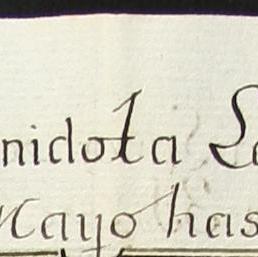 nidota La
Mayo has